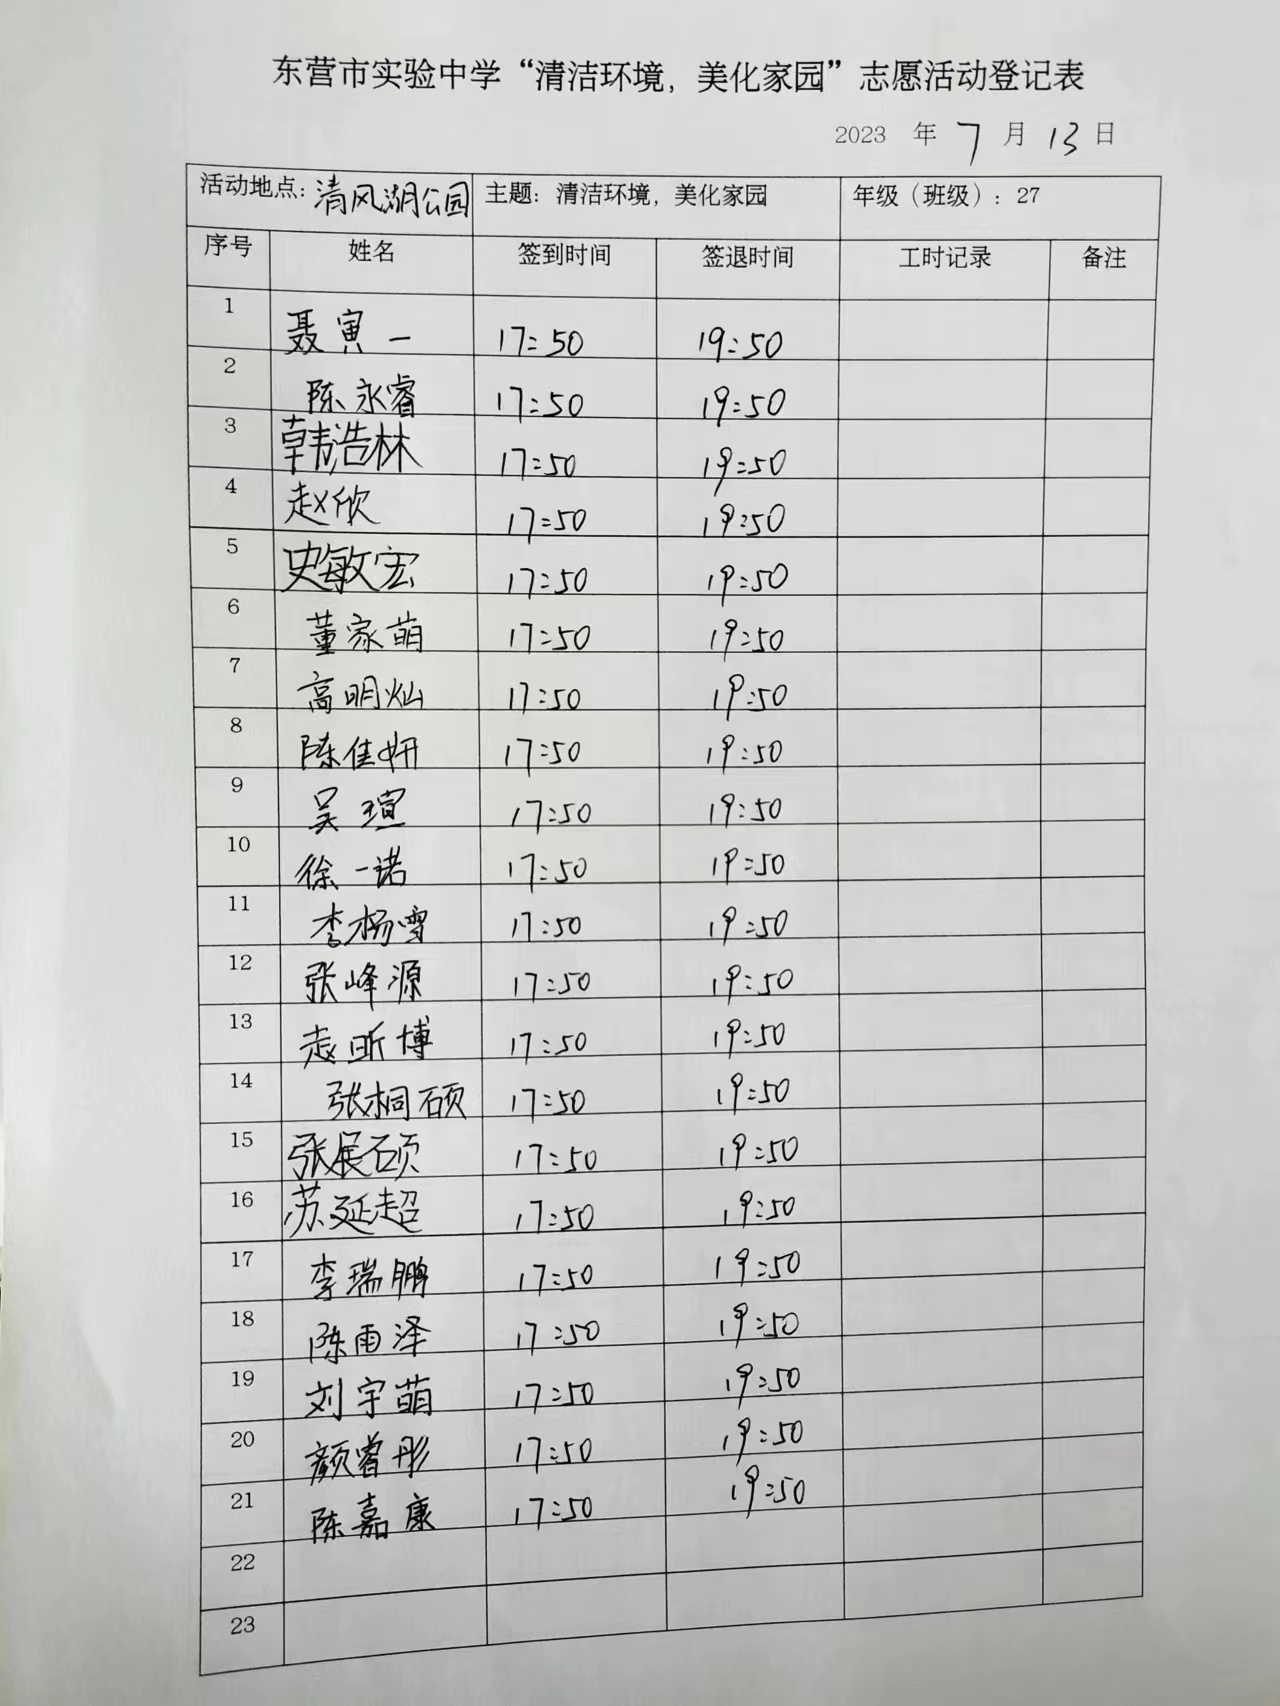 东营市实验中学“清洁环境，美化家园”志愿活动登记表
2023 年 7 月 13 日
活动地点：清风湖公园 主题：清洁环境，美化家园 年级（班级）：27
序号 姓名 签到时间 签退时间 工时记录 备注
1 聂寅一 17:50 19:50
2 陈永睿 17:50 19:50
3 韩浩林 17:50 19:50
4 赵欣 17:50 19:50
5 史敏宏 17:50 19:50
6 董家萌 17:50 19:50
7 高明灿 17:50 19:50
8 陈佳妍 17:50 19:50
9 吴瑄 17:50 19:50
10 徐一诺 17:50 19:50
11 李杨雪 17:50 19:50
12 张峰源 17:50 19:50
13 昕博 17:50 19:50
14 张桐硕 17:50 19:50
15 张展硕 17:50 19:50
16 苏延超 17:50 19:50
17 李瑞鹏 17:50 19:50
18 陈雨泽 17:50 19:50
19 刘宇萌 17:50 19:50
20 颜睿彤 17:50 19:50
21 陈嘉康 17:50 19:50
22
23